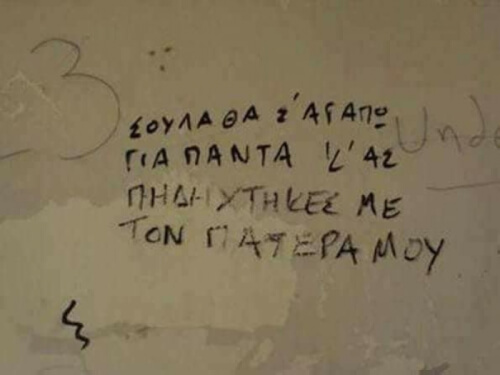 3
ΣΟΥΛΑ ΘΑ Σ' ΑΓΑΠΩ
ΓΙΑ ΠΑΝΤΑ Κ' ΑΣ
ΠΗΔΗΧΤΗΚΕΣ ΜΕ
ΤΟΝ ΠΑΤΕΡΑ ΜΟΥ